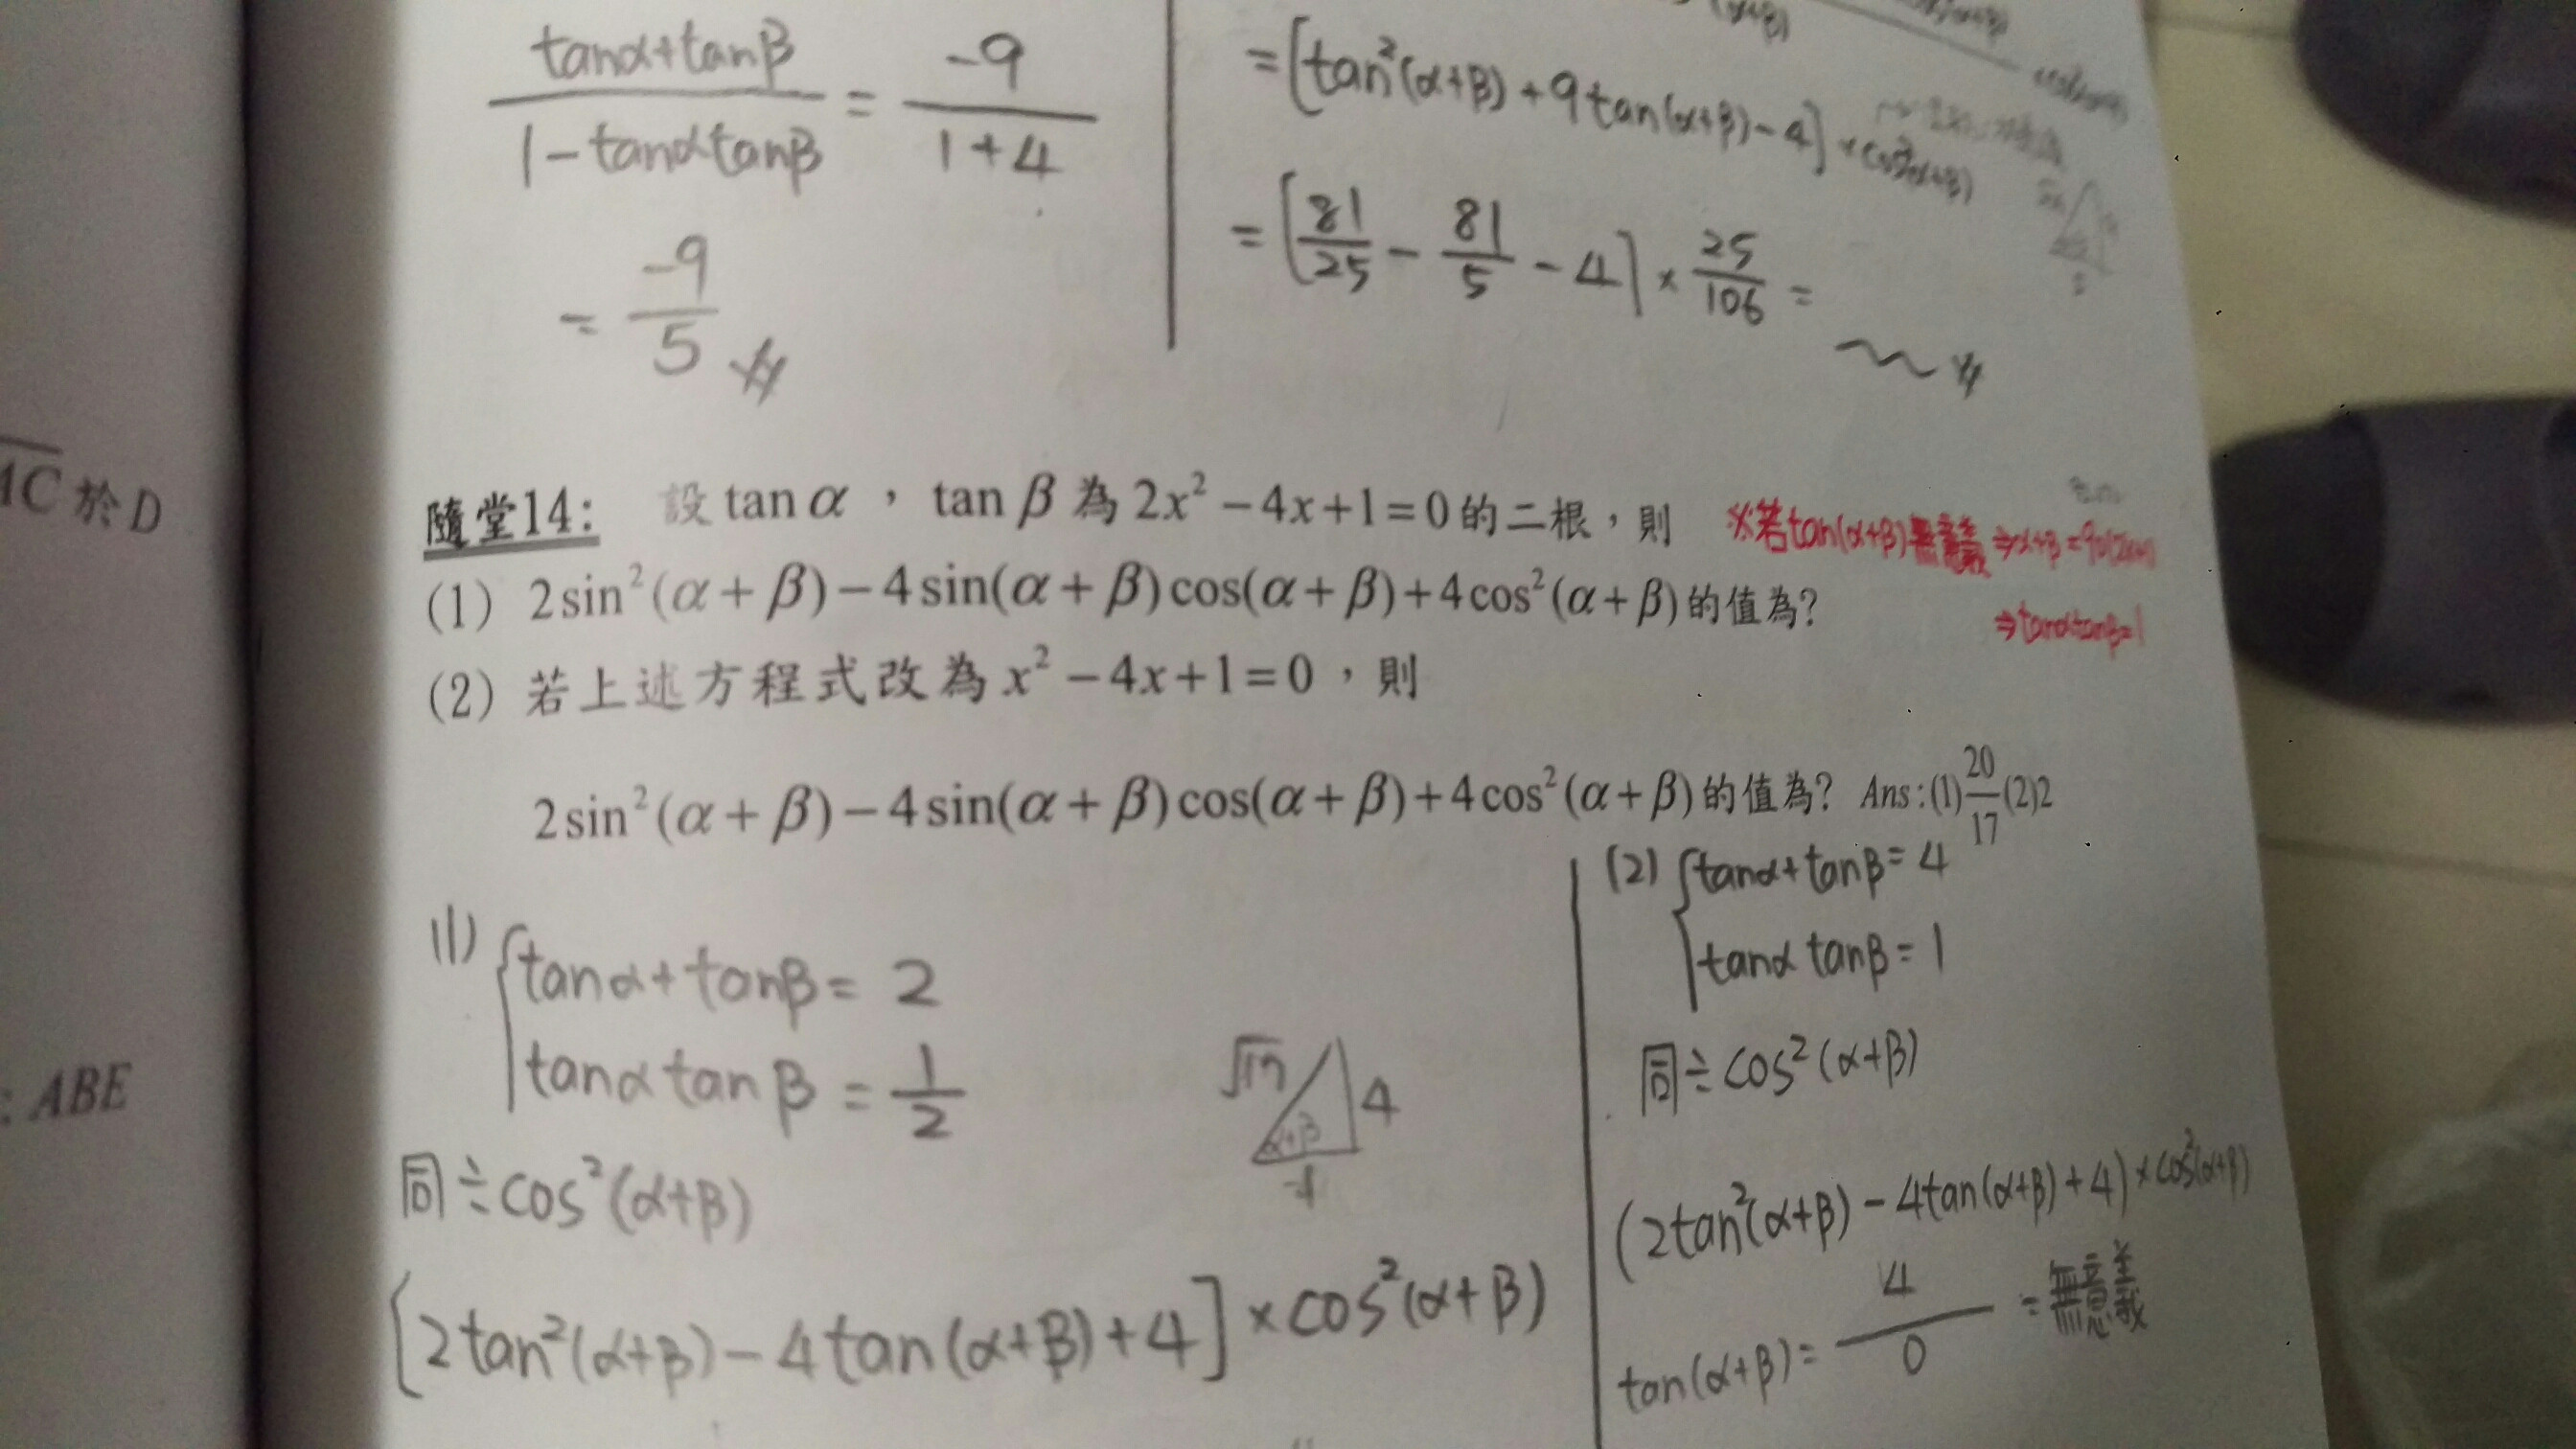 tanα+tanβ / 1-tanαtanβ = -9 / 1+4
= -9 / 5
=[tan²(α+β)+9tan(α+β)-4]×cos²(α+β)
=[81/25 - 81/5 - 4]×25/106=
AC 於 D
隨堂14: 設 tan α , tan β 為 2x² - 4x + 1 = 0 的二根,則
※若tan(α+β)無意義⇒α+β=
⇒tanαtanβ=1
(1) 2sin²(α+β)-4sin(α+β)cos(α+β)+4cos²(α+β)的值為?
(2) 若上述方程式改為 x² - 4x + 1 = 0 ,則
2sin²(α+β)-4sin(α+β)cos(α+β)+4cos²(α+β)的值為? Ans:(1)20/17(2)2
: ABE
(1) {tanα+tanβ= 2
tanα tan β = 1/2
√17 4
α+β
同÷cos²(α+β)
[2tan²(α+β)-4tan(α+β)+4]×cos²(α+β)
(2) {tanα+tanβ=4
tanα tanβ=1
同÷cos²(α+β)
(2tan²(α+β)-4tan(α+β)+4)×cos²(α+β)
tan(α+β)= 4/0 =無意義